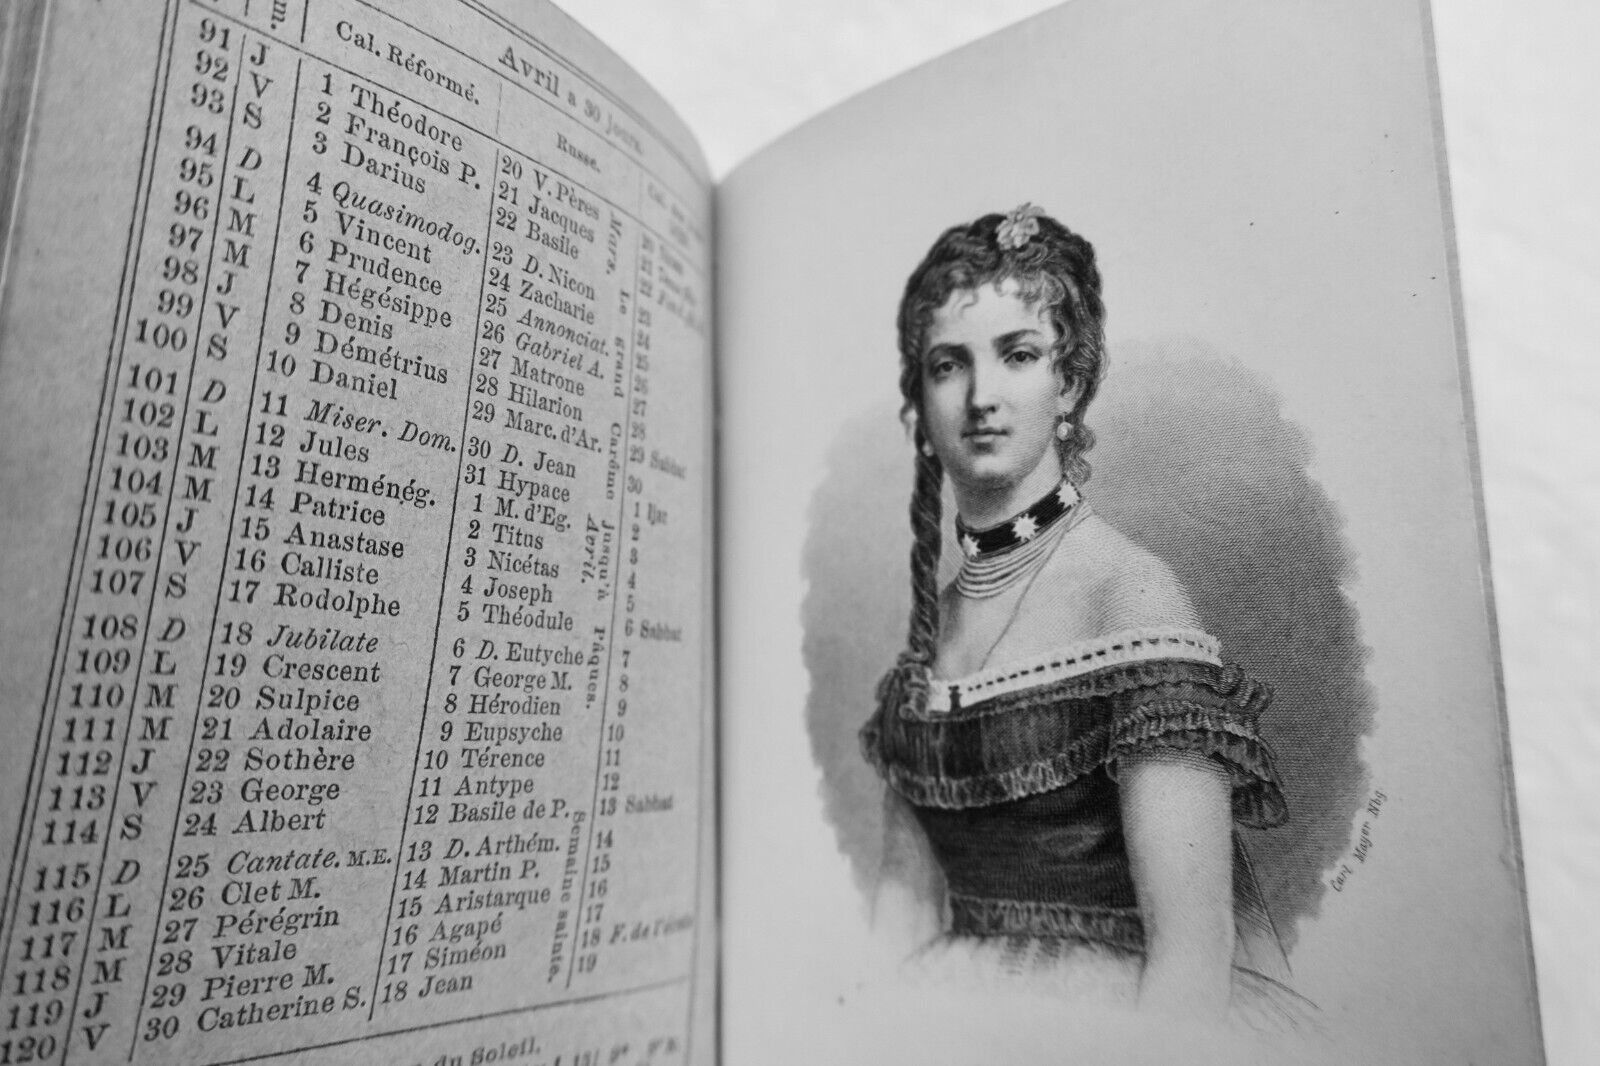 m. Cal. Réformé. Avril a 30 Jours. Russe.
91 J 1 Théodore 20 V. Pères
92 V 2 François P. 21 Jacques
93 S 3 Darius 22 Basile
94 D 4 Quasimodog. 23 D. Nicon 23
95 L 5 Vincent 24 Zacharie 24
96 M 6 Prudence 25 Annonciat. 25
97 M 7 Hégésippe 26 Gabriel A. 26
98 J 8 Denis 27 Matrone 27
99 V 9 Démétrius 28 Hilarion 28
100 S 10 Daniel 29 Marc. d'Ar. 29 Sabbat
101 D 11 Miser. Dom. 30 D. Jean 30
102 L 12 Jules 31 Hypace 1 Ijar
103 M 13 Herménég. 1 M. d'Eg. 2
104 M 14 Patrice 2 Titus 3
105 J 15 Anastase 3 Nicétas 4
106 V 16 Calliste 4 Joseph 5
107 S 17 Rodolphe 5 Théodule 6 Sabbat
108 D 18 Jubilate 6 D. Eutyche 7
109 L 19 Crescent 7 George M. 8
110 M 20 Sulpice 8 Hérodien 9
111 M 21 Adolaire 9 Eupsyche 10
112 J 22 Sothère 10 Térence 11
113 V 23 George 11 Antype 12
114 S 24 Albert 12 Basile de P. 13 Sabbat
115 D 25 Cantate. M.E. 13 D. Arthém. 14
116 L 26 Clet M. 14 Martin P. 15
117 M 27 Pérégrin 15 Aristarque 16
118 M 28 Vitale 16 Agapé 17
119 J 29 Pierre M. 17 Siméon 18 F. de
120 V 30 Catherine S. 18 Jean 19
Mars. Le grand Carême jusqu'à Pâques.
Avril.
Semaine sainte.
du Soleil.
Carl Mayer Nbg